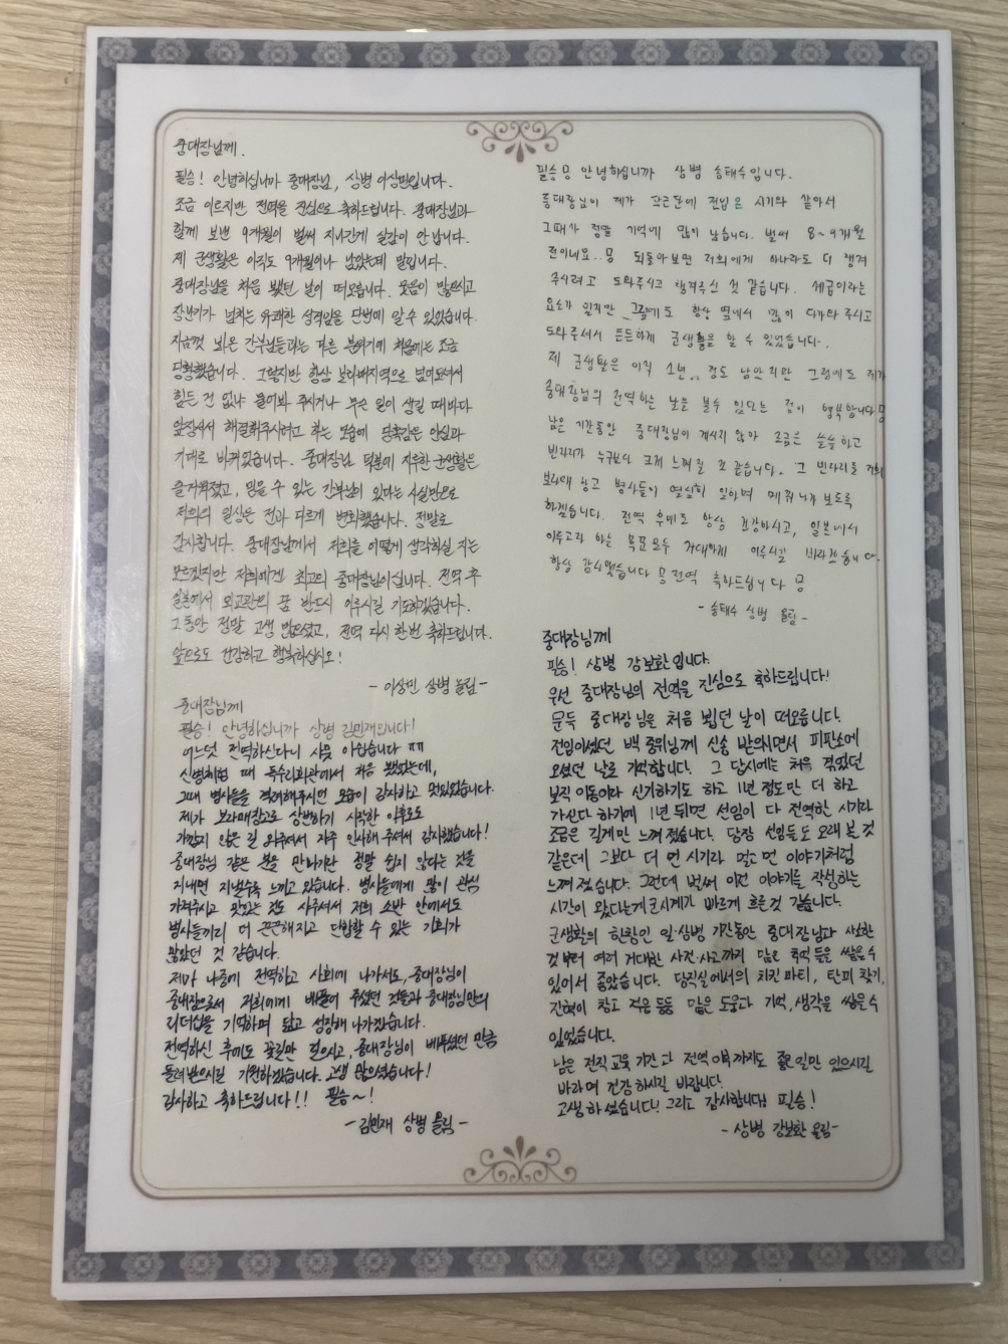 중대장님께.
필승! 안녕하십니까 중대장님, 상병 이상민입니다.
조금 이르지만 전역을 진심으로 축하드립니다. 중대장님과
함께 보낸 9개월이 벌써 지나간게 실감이 안 납니다.
제 군생활은 아직도 9개월이나 남았는데 말입니다.
중대장님을 처음 뵀던 날이 떠오릅니다. 웃음이 많으시고
장난기가 넘치는 유쾌한 성격임을 단번에 알 수 있었습니다.
지금껏 뵈온 간부님들과는 다른 분위기에 처음에는 조금
당황했습니다. 그렇지만 항상 보라매지역으로 넘어오셔서
힘든 건 없냐 물어봐 주시거나 무슨 일이 생길 때마다
앞장서서 해결해주시려고 하는 모습에 당혹감은 안심과
기대로 바뀌었습니다. 중대장님 덕분에 지루한 군생활은
즐거워졌고, 믿을 수 있는 간부님이 있다는 사실만으로
저희의 일상은 전과 다르게 변화했습니다. 정말로
감사합니다. 중대장님께서 저희를 어떻게 생각하실 지는
모르겠지만 저희에겐 최고의 중대장님이십니다. 전역 후
일본에서 외교관의 꿈 반드시 이루시길 기도하겠습니다.
그동안 정말 고생 많으셨고, 전역 다시 한번 축하드립니다.
앞으로도 건강하고 행복하십시오!
- 이상민 상병 올림 -
중대장님께
필승! 안녕하십니까 상병 김민재입니다!
어느덧 전역하신다니 사뭇 아쉽습니다 ㅠㅠ
신병체험 때 독수리회관에서 처음 뵀었는데,
그때 병사들을 격려해주시던 모습이 감사하고 멋있었습니다.
제가 보라매창고로 상번하기 시작한 이후로도
가깝지 않은 길 와주셔서 자주 인사해 주셔서 감사했습니다!
중대장님 같은 분을 만나기란 정말 쉽지 않다는 것을
지내면 지낼수록 느끼고 있습니다. 병사들에게 많이 관심
가져주시고 맛있는 것도 사주셔서 저희 소반 안에서도
병사들끼리 더 끈끈해지고 단합할 수 있는 기회가
많았던 것 같습니다.
제가 나중에 전역하고 사회에 나가서도, 중대장님이
중대장으로서 저희에게 베풀어 주셨던 것들과 중대장님만의
리더십을 기억하며 닮고 성장해 나가겠습니다.
전역하신 후에도 꽃길만 걸으시고, 중대장님이 베푸셨던 만큼
돌려받으시길 기원하겠습니다. 고생 많으셨습니다!
감사하고 축하드립니다!! 필승~!
- 김민재 상병 올림 -
필승 안녕하십니까 상병 송태수입니다.
중대장님이 제가 작근단에 전입온 시기와 같아서
그때가 정말 기억에 많이 남습니다. 벌써 8~9개월
전이네요.. 되돌아보면 저희에게 하나라도 더 챙겨
주시려고 도와주시고 챙겨주신 것 같습니다. 계급이라는
요소가 있지만 그럼에도 항상 옆에서 많이 다가와 주시고
도와주셔서 든든하게 군생활을 할 수 있었습니다.
제 군생활은 아직 1년.. 정도 남았지만 그럼에도 제가
중대장님의 전역하는 날을 볼수 있다는 점이 행복합니다
남은 기간동안 중대장님이 계시지 않아 조금은 쓸쓸하고
빈자리가 누구보다 크게 느껴질 것 같습니다. 그 빈자리를 저희
보라매 창고 병사들이 열심히 일하며 메꿔나가 보도록
하겠습니다. 전역 후에도 항상 건강하시고, 일본에서
이루고자 하는 목표 모두 거대하게 이루시길 바라겠습니다.
항상 감사했습니다 전역 축하드립니다
- 송태수 상병 올림 -
중대장님께
필승! 상병 강보환입니다.
우선 중대장님의 전역을 진심으로 축하드립니다!
문득 중대장님을 처음 뵙던 날이 떠오릅니다.
전임이셨던 백 중위님께 신송 받으시면서 피판소에
오셨던 날로 기억합니다. 그 당시에는 처음 겪었던
보직 이동이라 신기하기도 하고 1년 정도만 더 하고
가신다 하기에 1년 뒤면 선임이 다 전역한 시기라
조금은 길게만 느껴졌습니다. 당장 선임들도 오래 본 것
같은데 그보다 더 먼 시기라 멀고 먼 이야기처럼
느껴졌습니다. 그런데 벌써 이런 이야기를 작성하는
시간이 왔다는게 군시계가 빠르게 흐른것 같습니다.
군생활의 한창인 일·상병 기간동안 중대장님과 사소한
것부터 여러 거대한 사건·사고까지 많은 추억들을 쌓을수
있어서 좋았습니다. 당직실에서의 치킨파티, 탄피 찾기,
간혹이 창고 적응 등등 많은 도움과 기억, 생각을 쌓을수
있었습니다.
남은 전직교육 기간과 전역 이후까지도 좋은일만 있으시길
바라며 건강하시길 바랍니다.
고생하셨습니다! 그리고 감사합니다! 필승!
- 상병 강보환 올림 -